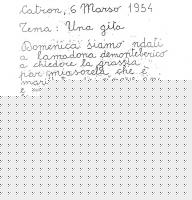 Catron, 6 Marso 1954
Tema: Una gita
Domenica siamo ndati
a lamadona demonteberico
a chiedere la grassia
par miasorela che è